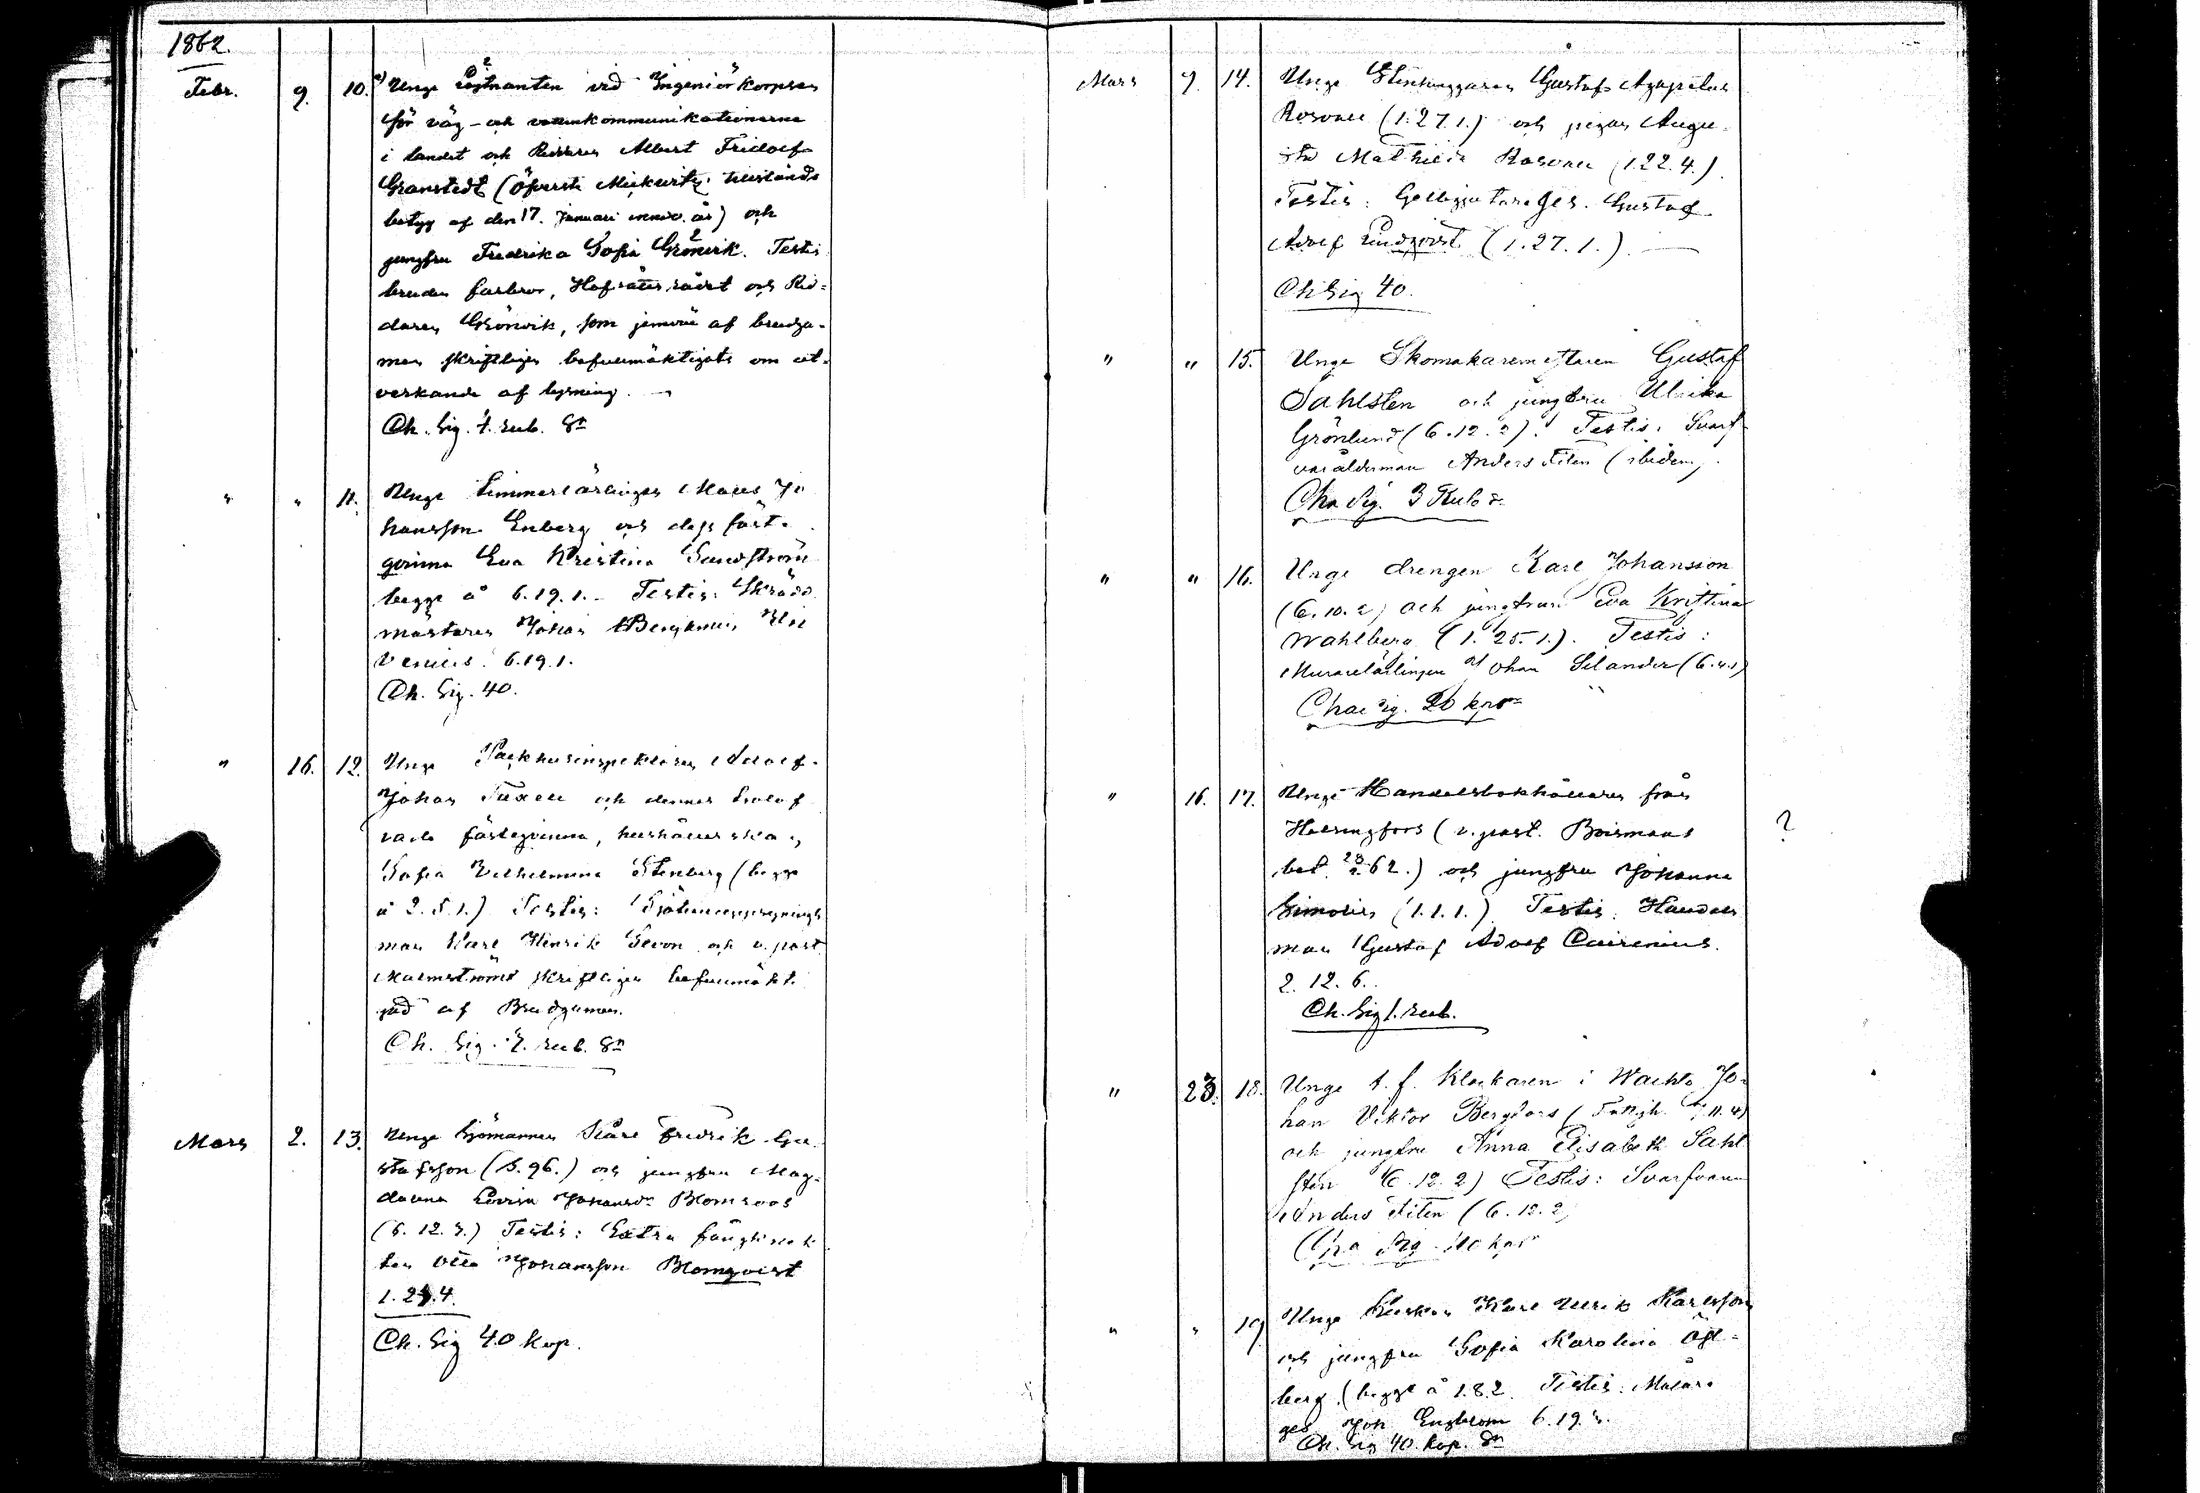 1862.
Febr. 9. 10. Unge Löjtnanten vid Ingeniörkorpsen
för väg- och vattenkommunikationerna
i landet och Riddaren Albert Fridolf
Granstedt (Öfverste tillstånds
betyg af den 17. Januari år) och
jungfru Fredrika Sofia Grönvik. Testis
brudens farbror, Hofrättsrådet och Rid-
daren Grönvik, som jemväl af brudga-
men skriftligen befullmäktigats om ut-
verkande af lysning. —
Ch. Sig. 7. rub. Sr
" " 11. Unge Timmerlärlingen Jo
hansson Enberg och dess fäst-
qvinna Eva Kristina Sandström
begge å 6.19.1. – Testis: Skrädd
mästaren Johan Benjamin
venius. 6.19.1.
Ch. Sig. 40.
" 16. 12. Unge Packhusinspektoren Adolf
Johan Taxell och dennes trolof
vade fästeqvinna, hushållerskan
Sofia Vilhelmina Stenberg (begge
å 2.5.1.) Testis:
man Karl Henrik Sevon och v. past.
Malmström skriftligen befullmäkt.
gad af Brudgumen.
Ch. Sig. 7. rub. Sr
Mars 2. 13. Unge Sjömannen Kårl Fredrik Gu
stafsson (5.96.) och jungfru Mag-
dalena Lovisa Johansdr Blomroos
(6.12.3.) Testis: Extra
ten Otto Johansson Blomqvist
1.24.4.
Ch. Sig 40 kop.
Mars 9. 14. Unge Stenhuggaren Gustaf Agapetus
Rosvall (1.27.1.) och pigan Augu-
sta Mathilda Rosvall (1.22.4.)
Testis: Gelbgjutareges. Gustaf
Adolf Lindqvist (1.27.1.) —
Ch Sig 40.
" " 15. Unge Skomakaremästaren Gustaf
Sahlsten och jungfru Ulrika
Grönlund (6.12.2). Testis: Svarf-
vareålderman Anders Fiten (ibidem).
Cha Sig. 3 Rub Sr
" " 16. Unge drengen Karl Johansson
(6.10.2) och jungfrun Eva Kristina
Wahlberg (1.25.1.). Testis:
Murarelärlingen Johan Selander (6.4.1)
Cha Sig. 20 kpr
" 16. 17. Unge Handelsbokhållaren från
Helsingfors (v. past. Boismans
bet. 62.) och jungfru Johanna
Simolin (1.1.1.) Testis: Handels
man Gustaf Adolf Cairenius.
2.12.6.
Ch. Sig 1. rub.
?
" 23. 18. Unge t. f. Klockaren i Wachto Jo-
han Viktor Bergfors (Fattigh. 11.4)
och jungfru Anna Elisabeth Sahl
sten (6.12.2) Testis: Svarfvare
Anders Fiten (6.12.2)
Cha Sig. 40 kpr
" " 19. Unge Kusken Karl Ulrik Karlsson
och jungfru Sofia Karolina Öst-
berg, (begge å 1.8.2. Testis: Målare
ges Joh. Engblom 6.19.
Ch. Sig 40. kop. Sr